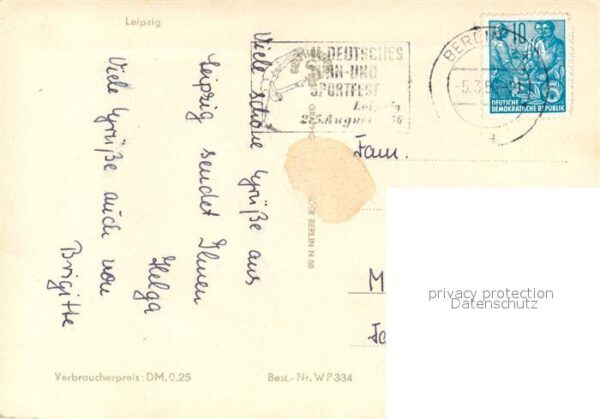 Leipzig
Viele schöne Grüße aus
Leipzig sendet Ihnen
Helga
Viele Grüße auch von
Brigitte
DEUTSCHES
UND
SPORTFEST
Leipzig
2.-5. August 56
BERLIN
10
5
DEUTSCHE
DEMOKRATISCHE REPUBLIK
Fam.
BERLIN N 58
M
privacy protection
Datenschutz
Verbraucherpreis: DM. 0.25
Best.-Nr. W 2334